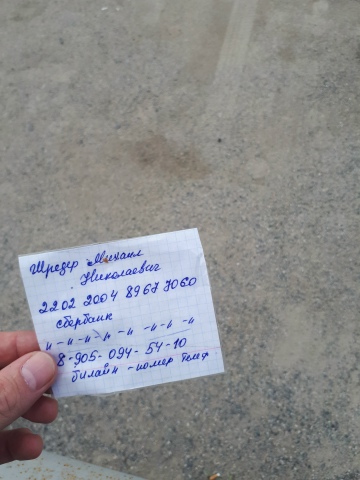 Шредер Михаил
Николаевич
2202 2004 8967 7060
сбербанк
и-и-и-и-и-и-и-и
8-905-094-54-10
билайн-номер телеф